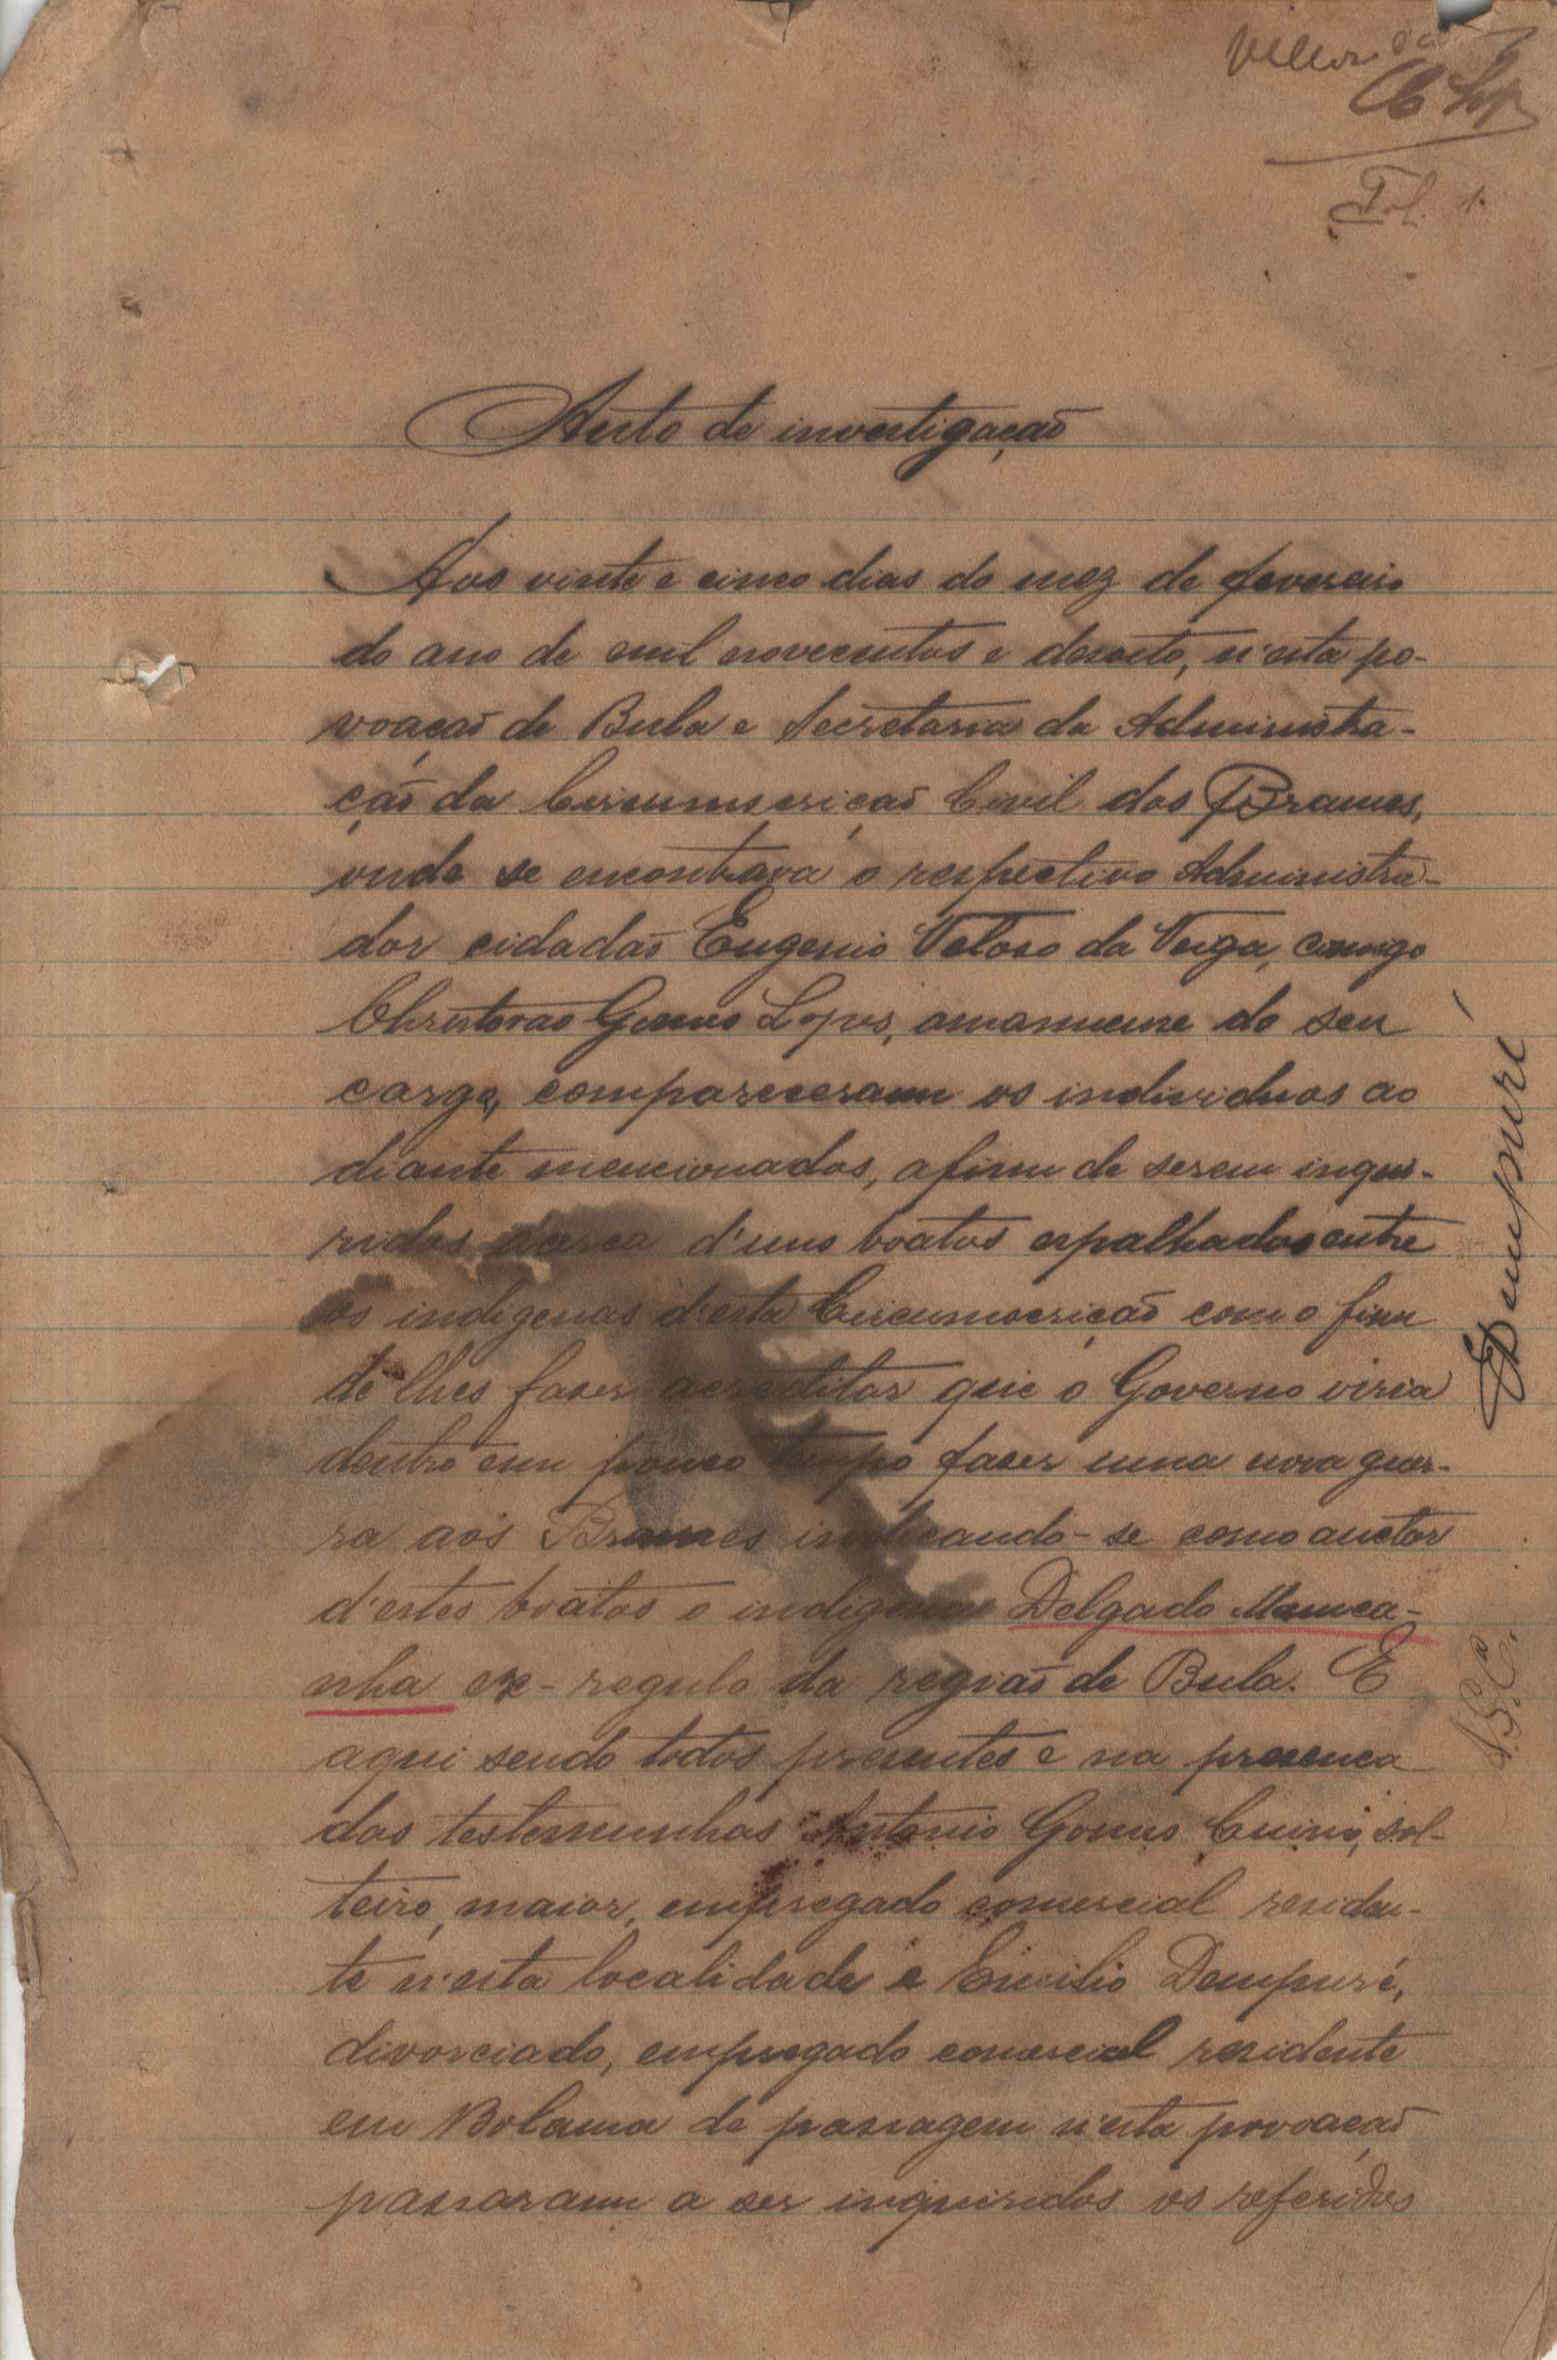 Fol. 1.
Auto de investigação
Aos vinte e cinco dias do mez de fevereiro
do ano de mil novecentos e dezoito, n'esta po-
voação de Bula e Secretaria da Administra-
ção da Circumscrição Civil dos Brames,
onde se encontrava o respectivo Administra-
dor cidadão Eugenio Veloso da Veiga, comigo
Christovão Gomes Lopes, amanuense do seu
cargo, compareceram os individuos ao
diante mencionados, afim de serem inqui-
ridos ácerca d'uns boatos espalhados entre
os indigenas d'esta Circumscrição com o fim
de lhes fazer acreditar que o Governo viria
dentro em pouco tempo fazer uma nova guer-
ra aos Brames indicando-se como auctor
d'estes boatos o indigena Delgado Manca-
nha ex-regulo da região de Bula. E
aqui sendo todos presentes e na presença
das testemunhas Antonio Gomes sol-
teiro, maior, empregado comercial residen-
te n'esta localidade e Emilio Dempuré,
divorciado, empregado comercial residente
em Bolama de passagem n'esta povoação
passaram a ser inquiridos os referidos
Dempuré